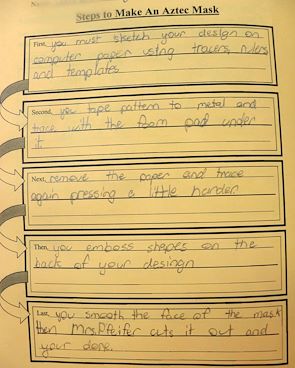 Steps to Make An Aztec Mask
First, you must sketch your design on
computer paper using tracers, rulers
and templates
Second, you tape pattern to metal and
trace with the foam pad under
it
Next, remove the paper and trace
again pressing a little harder
Then, you emboss shapes on the
back of your desingn
Last, you smooth the face of the mask
then Mrs. Pfeifer cuts it out and
your done.